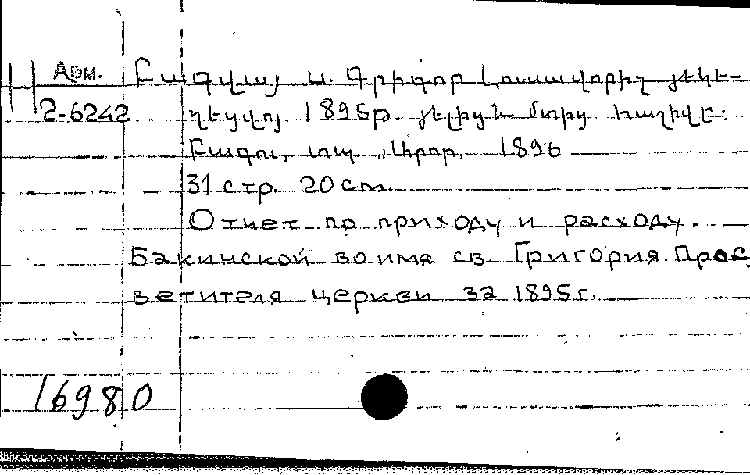 Арм. Բագվայ ս. Գրիգոր Լուսավորիչ յեկե-
2-6242 ղեցվոյ 1895թ. յելից և մտից հաշիվը:
Բագու, տպ. „Արոր, 1896
31 стр. 20 см.
Отчет по приходу и расходу
Бакинской во имя св. Григория Прос
ветителя церкви за 1895 г.
16980